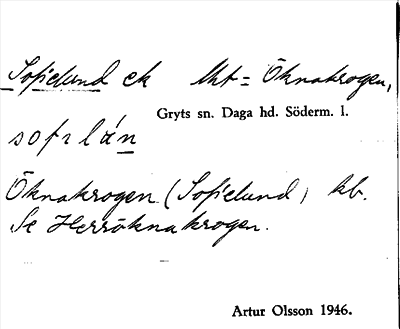 Sofielund ek Uht = Öknakrogen,
Gryts sn. Daga hd. Söderm. l.
sofɩlán
Öknakrogen (Sofielund) kb.
Se Herröknakrogen.
Artur Olsson 1946.